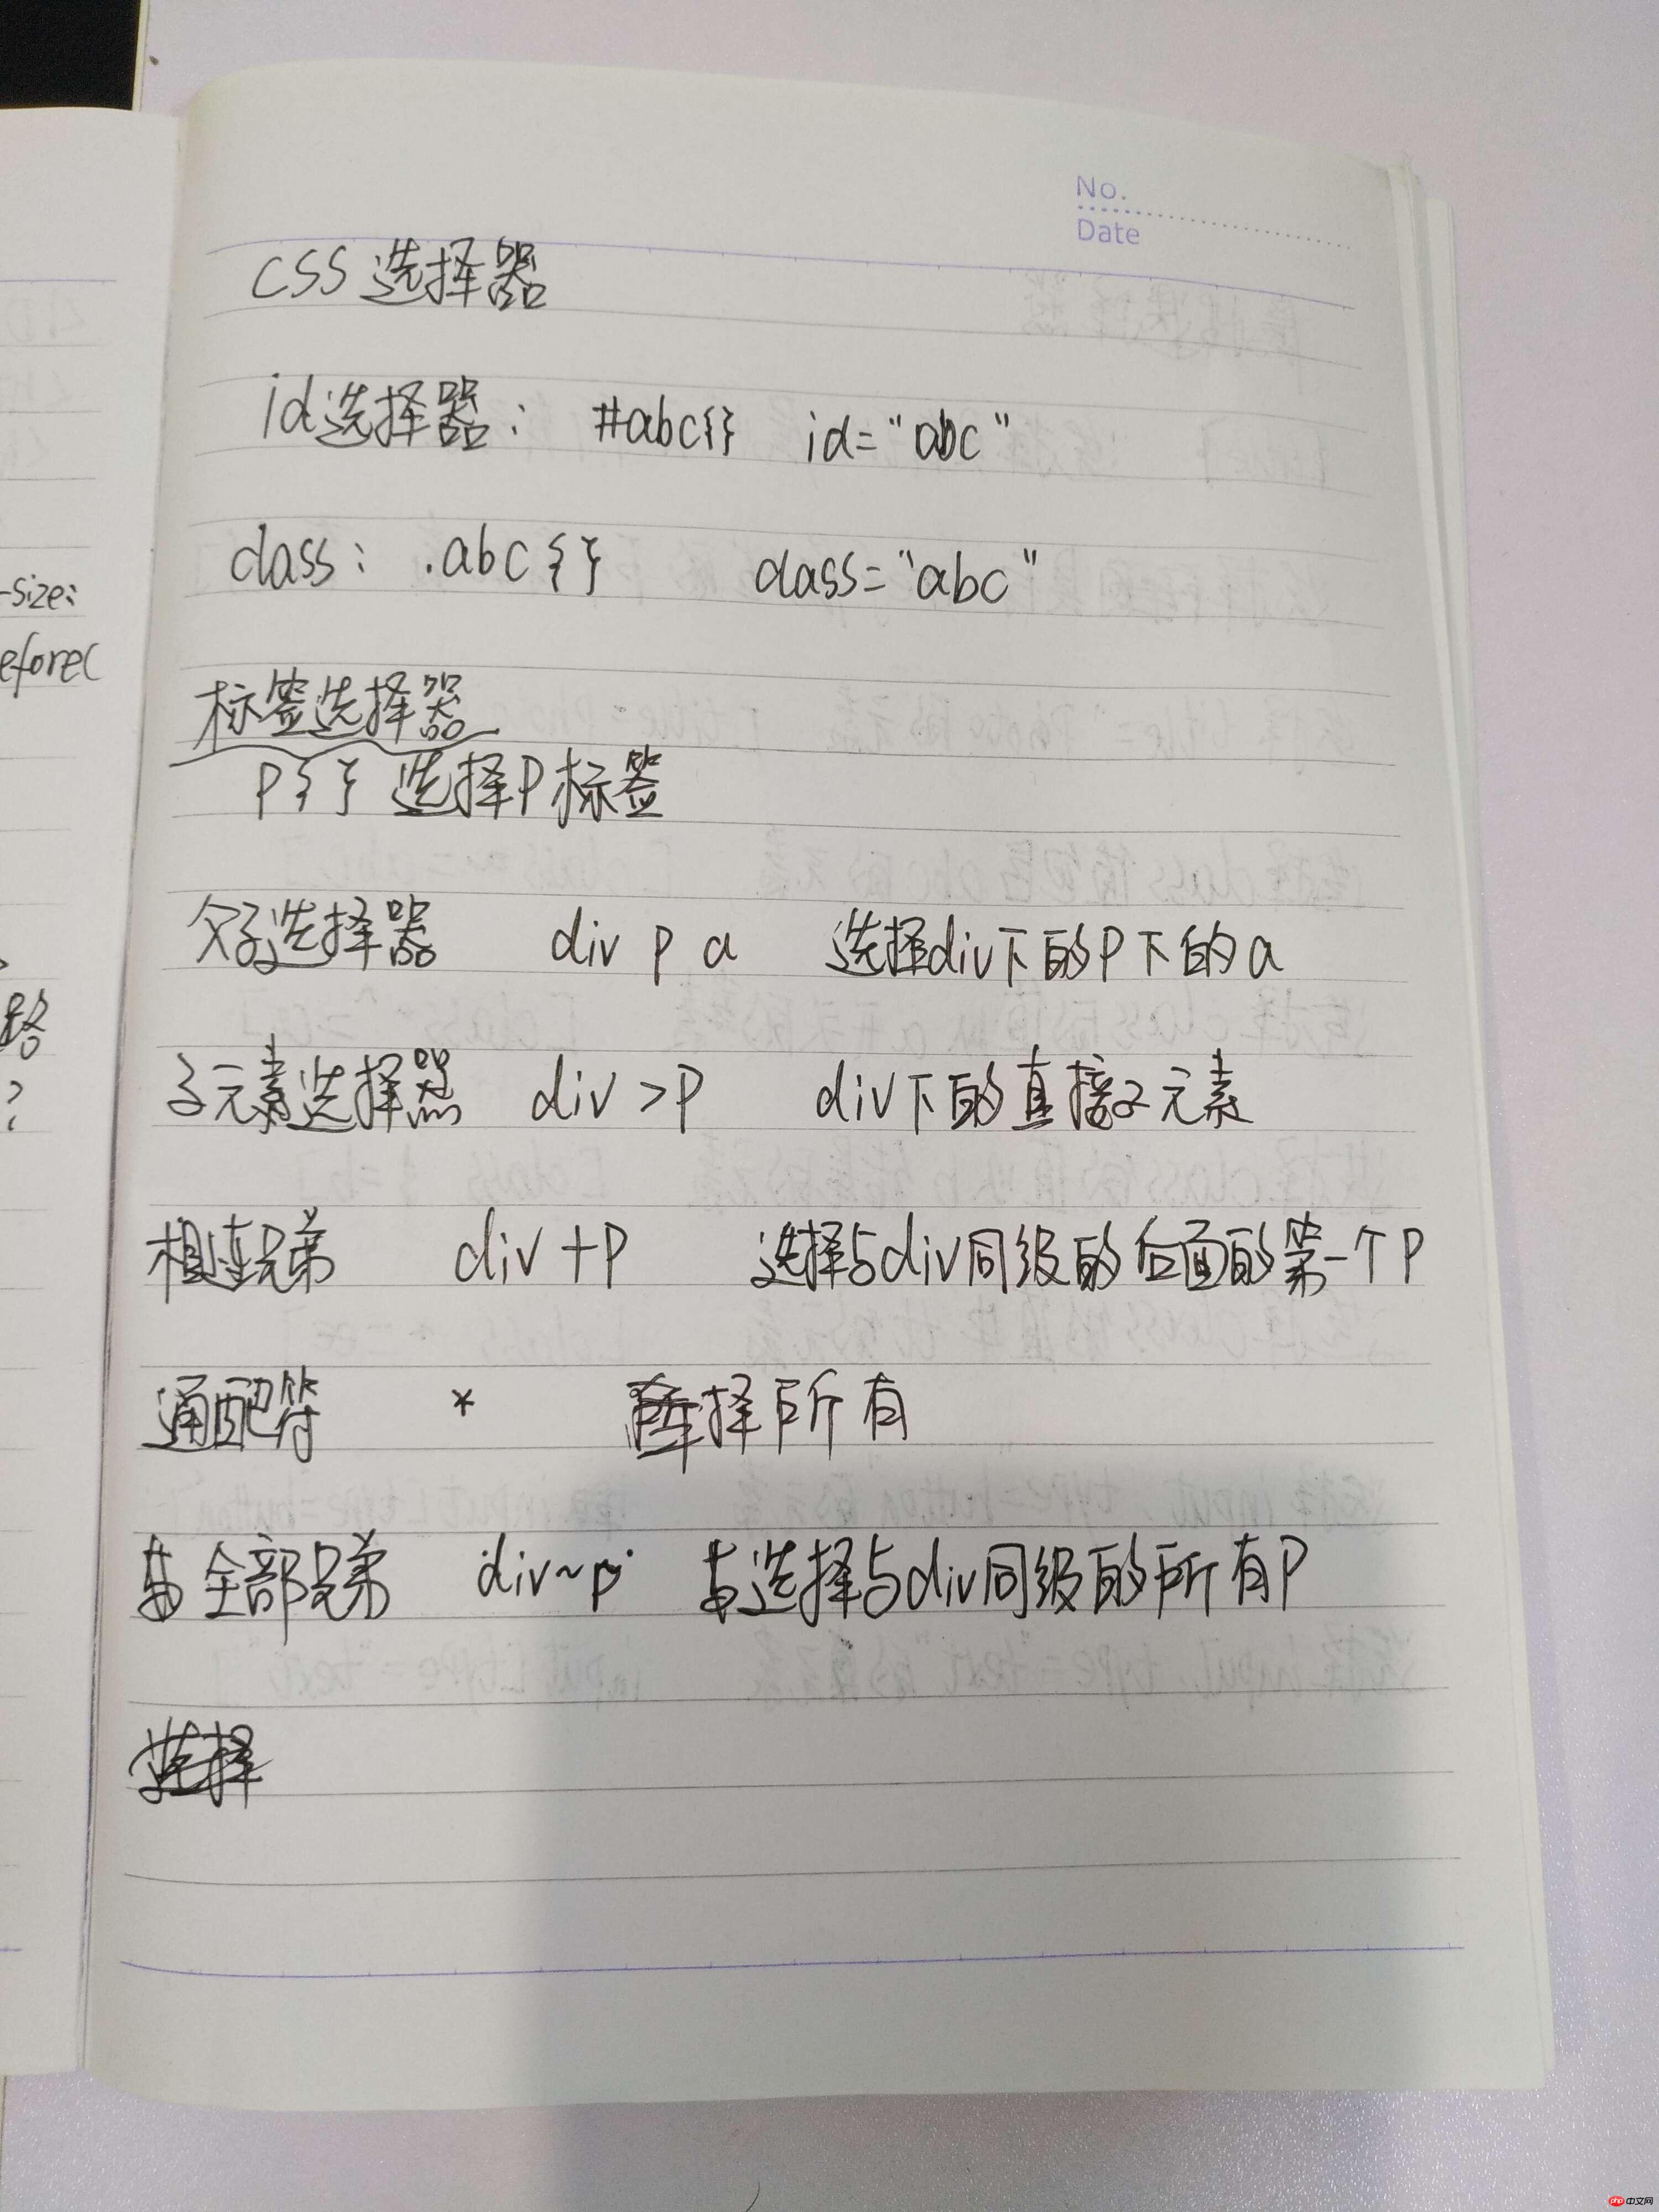 No.
Date
CSS 选择器
id选择器： #abc{} id="abc"
class： .abc {} class="abc"
标签选择器
P{} 选择P标签
父子选择器 div p a 选择div下的P下的a
子元素选择器 div>P div下的直接子元素
相连兄弟 div+P 选择与div同级的后面的第一个P
通配符 * 选择所有
全部兄弟 div~p 选择与div同级的所有P
选择
-size:
efore(
路
?
php 中文网